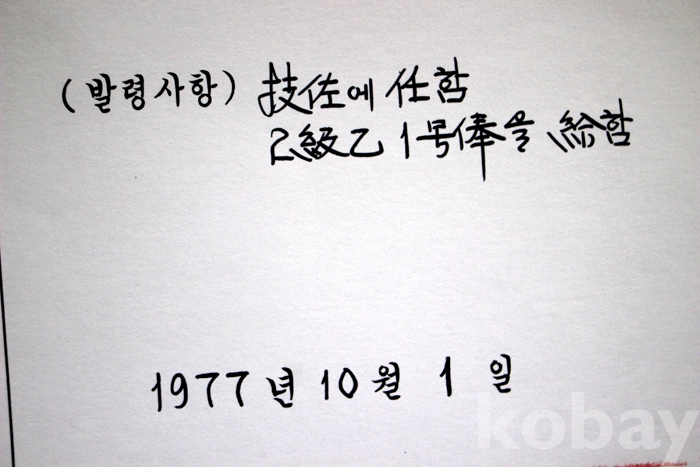 (발령사항) 技佐에 任함
2級乙 1号俸을 給함
1977년 10월 1 일
kobay